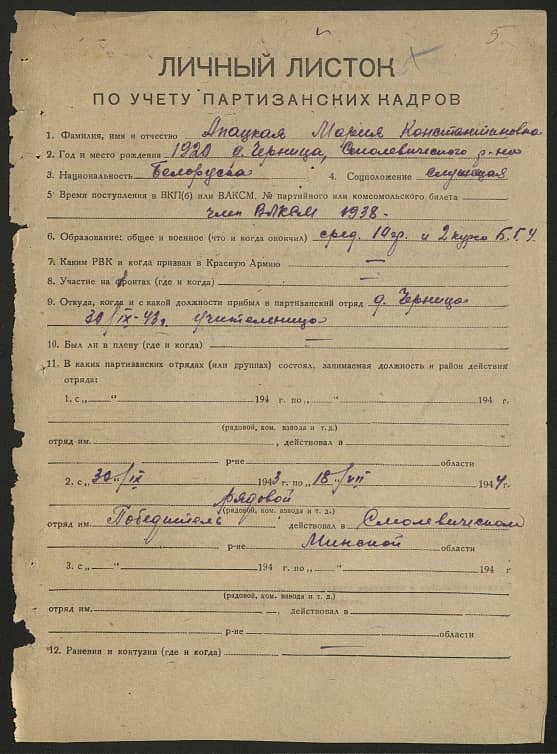 5
ЛИЧНЫЙ ЛИСТОК
ПО УЧЕТУ ПАРТИЗАНСКИХ КАДРОВ
1. Фамилия, имя и отчество Апацкая Мария Константиновна
2. Год и место рождения 1920 д. Черница, Смолевического р-на
3. Национальность Белоруска 4. Соцположение служащая
5. Время поступления в ВКП(б) или ВЛКСМ, № партийного или комсомольского билета
член ВЛКСМ 1938 -
6. Образование: общее и военное (что и когда окончил) сред. 10 гр. и 2 курса Б.Г.У.
7. Каким РВК и когда призван в Красную Армию —
8. Участие на фронтах (где и когда) —
9. Откуда, когда и с какой должности прибыл в партизанский отряд д. Черница
30/IX-43г. учительница
10. Был ли в плену (где и когда) —
11. В каких партизанских отрядах (или группах) состоял, занимаемая должность и район действия
отряда:
1. с „ “ 194 г. по „ “ 194 г.
(рядовой, ком. взвода и т. д.)
отряд им. , действовал в
р-не области
2. с „30“/IX 1943 г. по „18“/VII 1944 г.
рядовой
(рядовой, ком. взвода и т. д.)
отряд им. Победитель действовал в Смолевическом
р-не Минской области
3. с „ “ 194 г. по „ “ 194 г.
(рядовой, ком. взвода и т. д.)
отряд им. , действовал в
р-не области
12. Ранения и контузии (где и когда) —